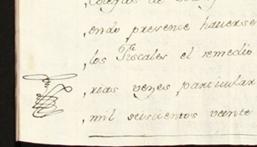 endo presence haverse
los Fiscales el remedio
rias vezes, particular
mil seiscientos veinte